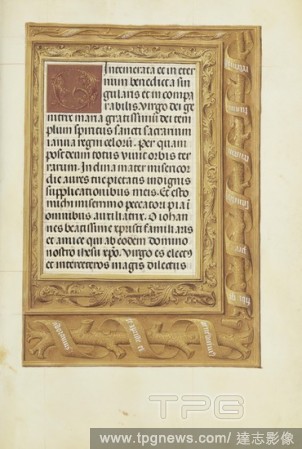 Intemerata et in eter
num benedicta sin
gularis et in compa
rabilis. virgo dei ge
nitrix maria gratissimũ dei tem
plum spiritus sancti sacrarium
ianua regni celorũ. per quam
post deum totus viuit orbis ter
rarum. Inclina mater misericor
die aures tue pietatis indignis
supplicationibus meis. et esto
michi misero peccatori pia ĩ
omnibus auxiliatrix. O iohan
nes beatissime xpristi familiaris
et amice qui ab eodem domino
nostro ihesu xpo. virgo es electꝰ
et inter ceteros magis dilectus
TPG
www.tpgnews.com / 達志影像